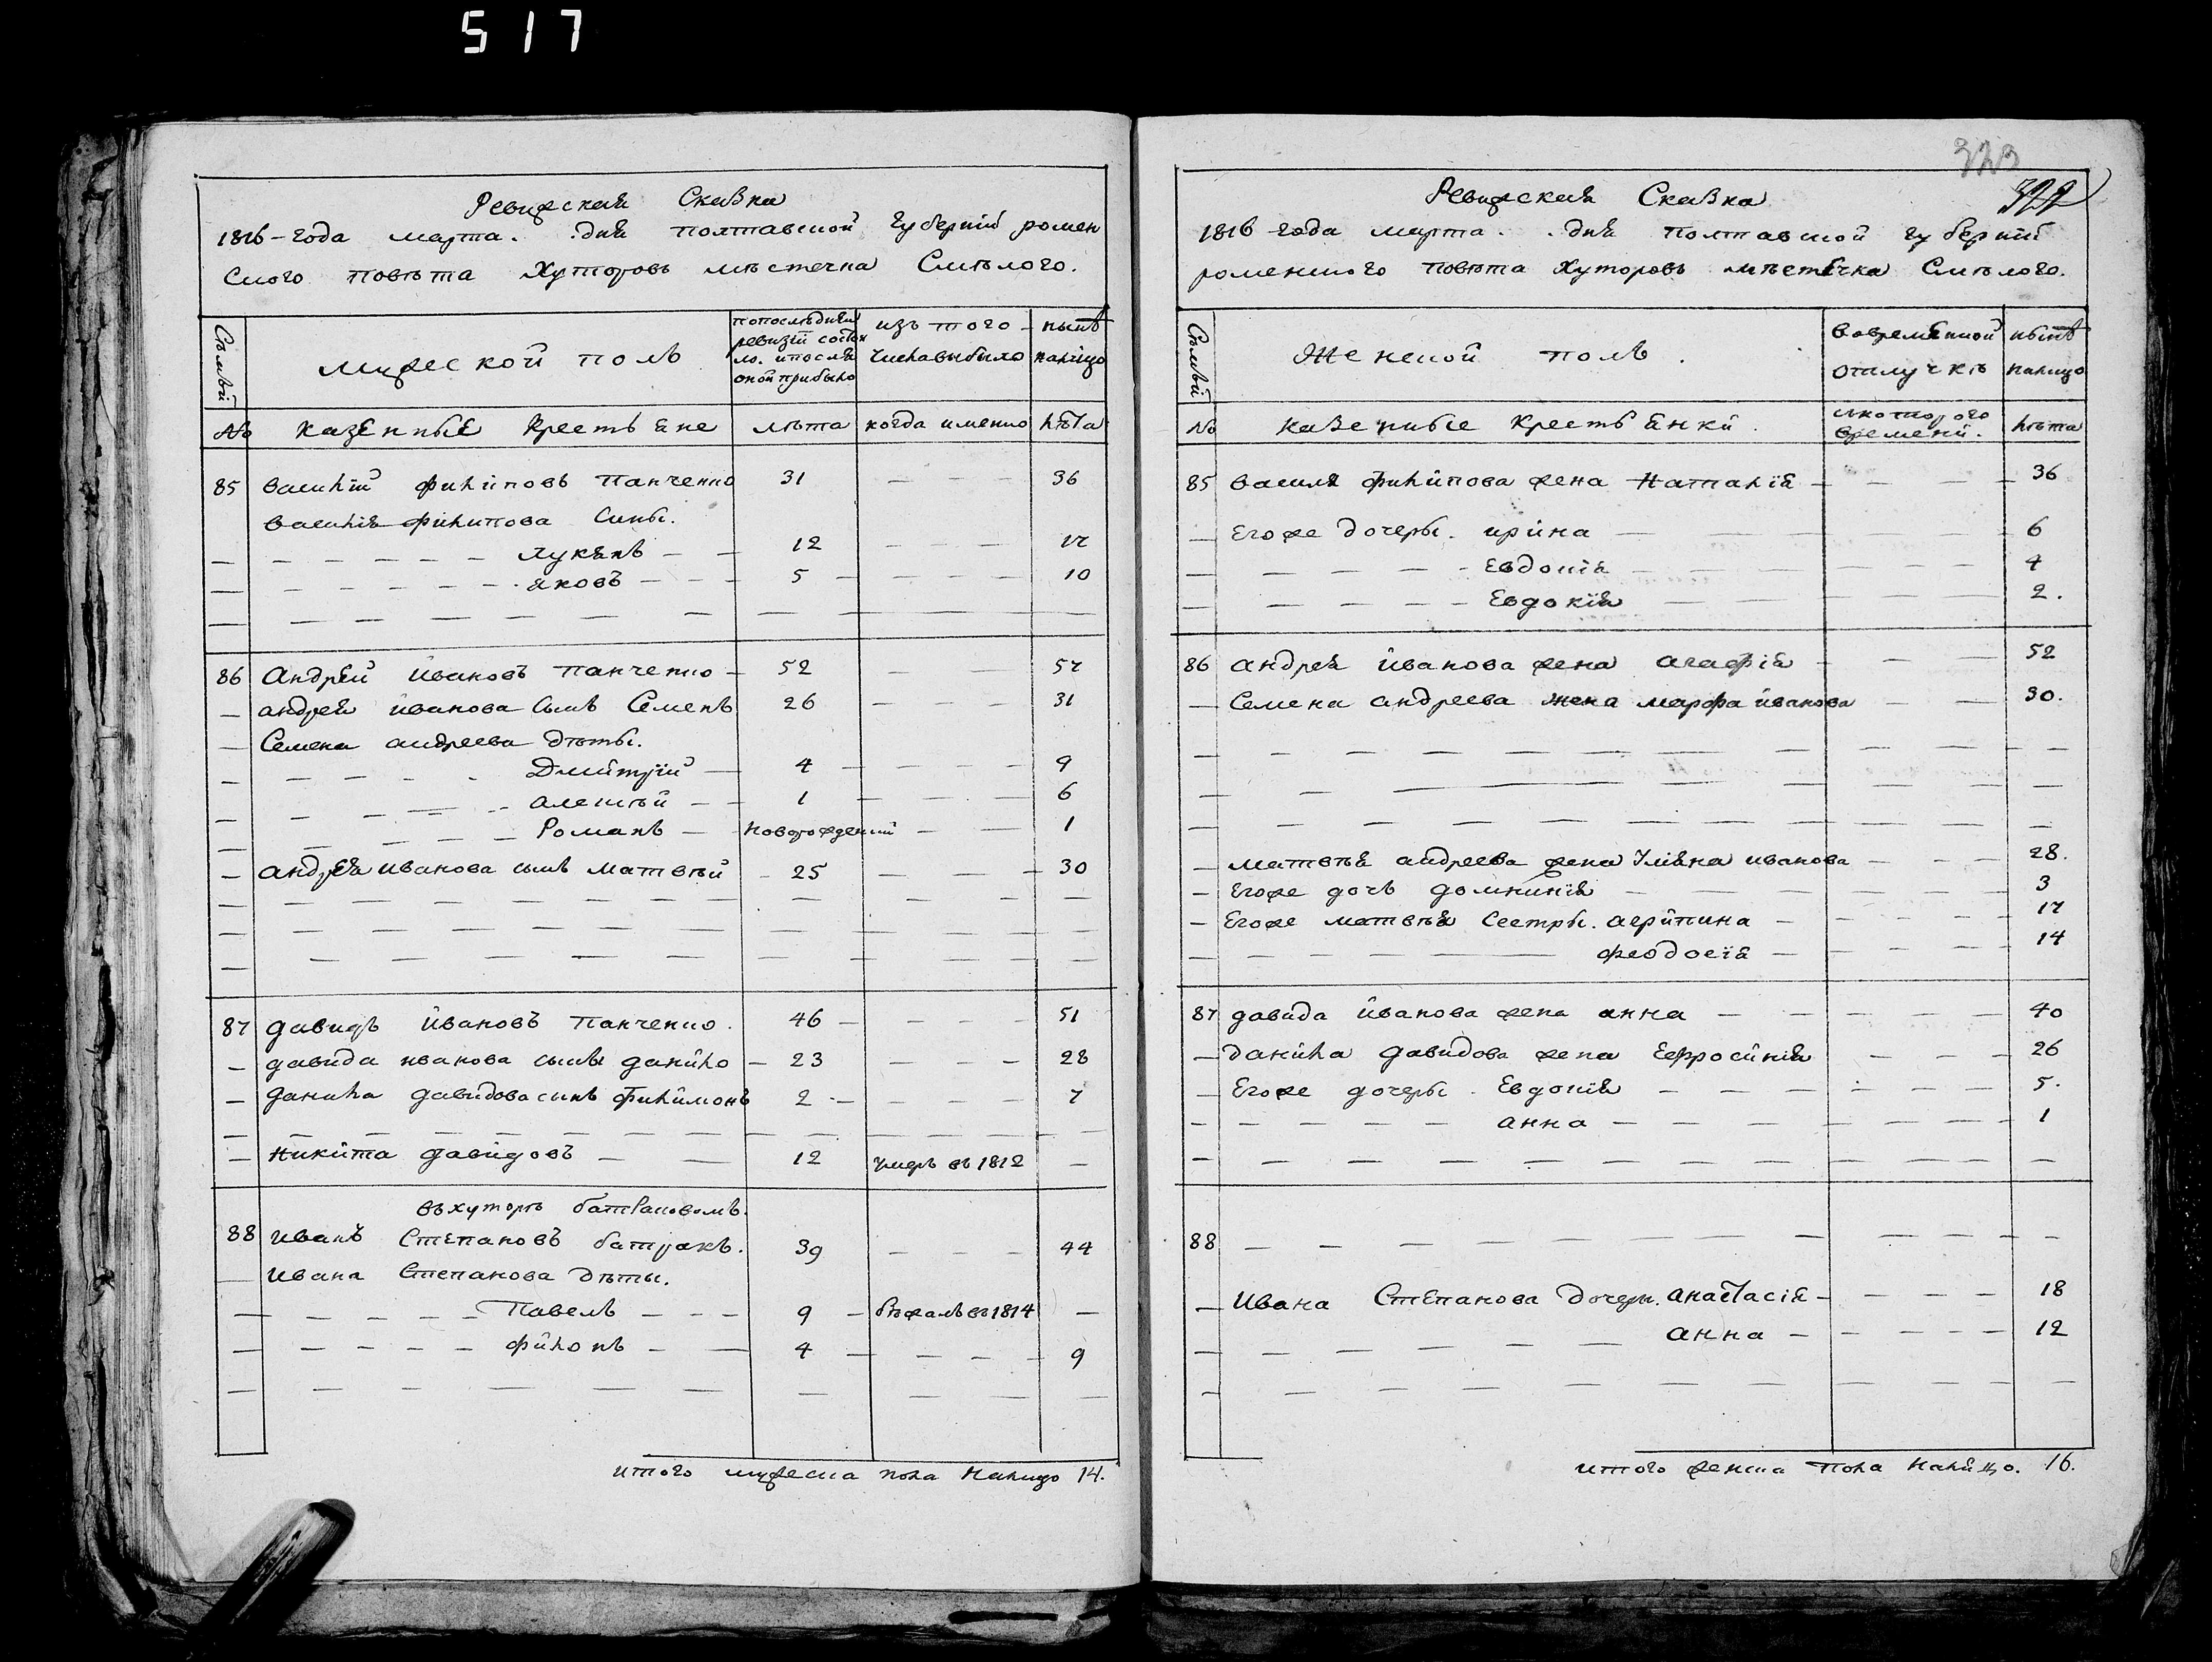 517
Ревижская Сказка
1816-года марта. .дня полтавской губерній ромен
ского повѣта Хуторовъ мѣстечка Смѣлого.
Сѣмьй
мужеской полъ
попослѣдней ревизій состоя ло. ипослѣ оной прибыло
изъ того числавыбыло
нынѣ налицо
№ казенные крестьяне лѣта когда именно лѣта
85 Василій филиповъ Панченко 31 — — — 36
Василія филипова сины.
лукянъ 12 — — — 17
яковъ 5 — — — 10
86 Андрей ивановъ Панченко 52 — 57
андрея иванова сынъ Семенъ 26 — — — 31
Семена андреева дѣты.
Дмитрій 4 — — — 9
алексѣй 1 — — — 6
Романъ новорожденій — — 1
андрея иванова сынъ матвѣй 25 — — — 30
87 давидъ ивановъ Панченко. 46 — — — 51
давида иванова сынъ данило 23 — — — 28
данила давидова синъ филимонъ 2 — — — 7
Никита давидовъ — — 12 умеръ въ 1812 —
въхуторѣ батраковомъ.
88 иванъ Степановъ батракъ. 39 — — — 44
ивана Степанова дѣты.
Павелъ — — — 9 бѣжалъвъ1814 —
филонъ — — 4 — — — 9
итого мужеска пола налицо 14.
323
322
Ревижская Сказка
1816 года марта. .дня полтавской губерній
роменского повѣта Хуторовъ мѣстечка Смѣлого.
Сѣмьй
Женской полъ.
вовременной отлучкѣ
нынѣ налицо
№ казенные крестьянки. скоторого времени. лѣта
85 василя филипова жена Наталія — — — 36
Егоже дочеры. ирина 6
Евдокія 4
Евдокія 2.
86 андрея иванова жена агафія — — 52
Семена андреева жена марфа иванова — — 30.
матвѣя андреева жена Уліяна иванова — — — 28.
Егоже дочь домникія 3
Егоже матвѣя сестры. агрипина 17
феодосія 14
87 давида иванова жена анна 40
данила давидова жена Ефросинія 26
Егоже дочеры. Евдокія 5.
анна 1
88
ивана Степанова дочеры. анастасія 18
анна 12
итого женска пола налицо. 16.